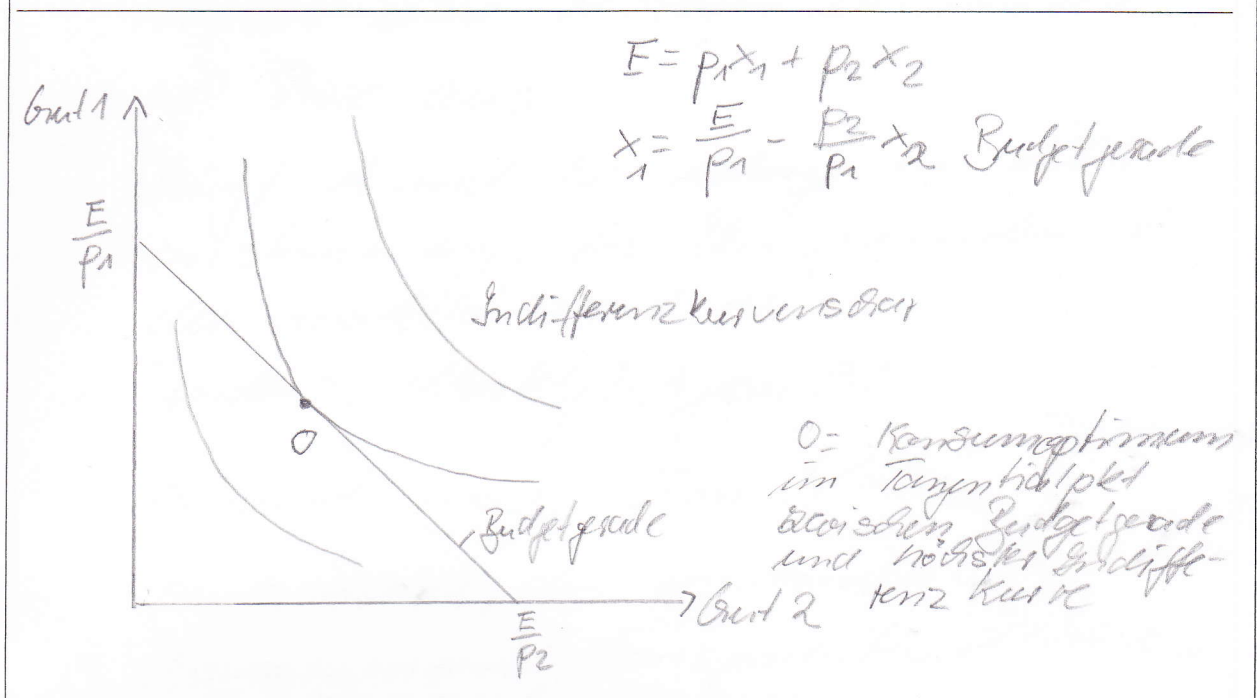 E = p1x1 + p2x2
x1 = E/p1 - p2/p1 x2 Budgetgerade
Gut 1
E/p1
Indifferenzkurvenschar
O
O = Konsumoptimum
im Tangentialpkt
zwischen Budgetgerade
und höchster Indiffe-
renzkurve
Budgetgerade
Gut 2
E/p2